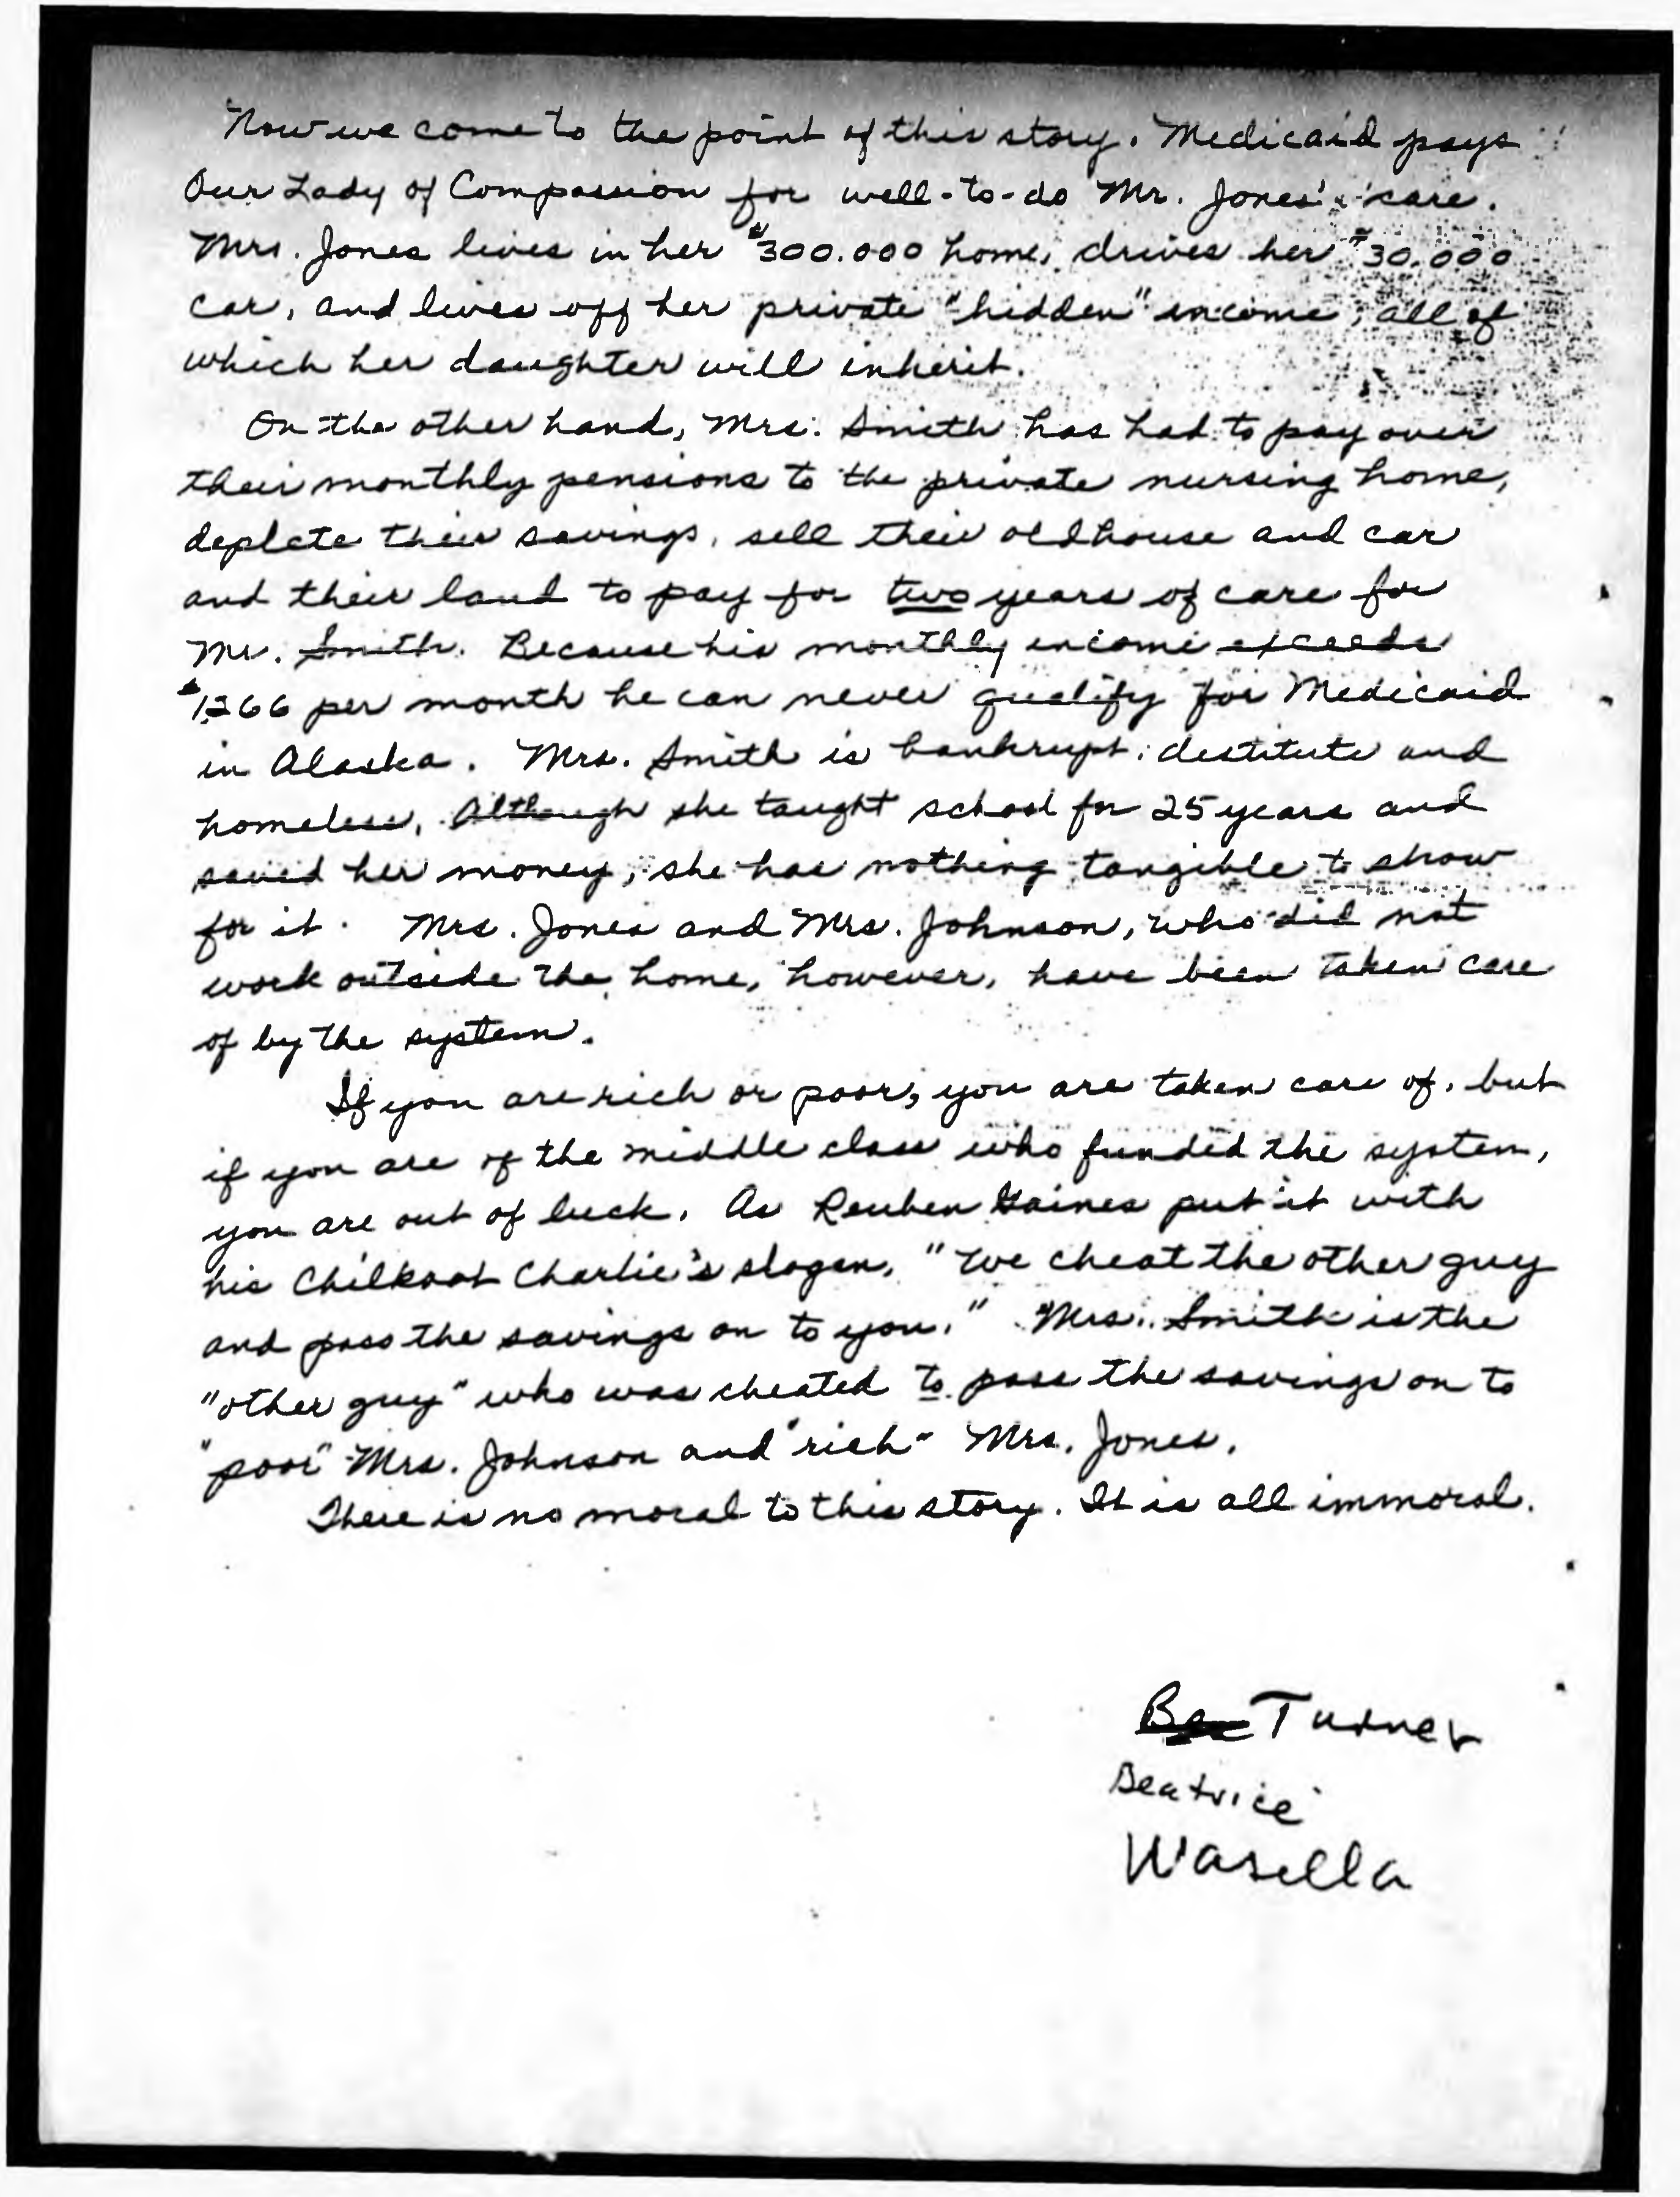 Now we come to the point of this story. Medicaid pays
Our Lady of Compassion for well-to-do Mr. Jones' care.
Mrs. Jones lives in her $300.000 home, drives her $30.000
car, and lives off her private "hidden" income, all of
which her daughter will inherit.
On the other hand, Mrs. Smith has had to pay over
their monthly pensions to the private nursing home,
deplete their savings, sell their old house and car
and their land to pay for two years of care for
Mr. Smith. Because his monthly income exceeds
$1,266 per month he can never qualify for Medicaid
in Alaska. Mrs. Smith is bankrupt, destitute and
homeless. Although she taught school for 25 years and
saved her money, she has nothing tangible to show
for it. Mrs. Jones and Mrs. Johnson, who did not
work outside the home, however, have been taken care
of by the system.
If you are rich or poor, you are taken care of, but
if you are of the middle class who funded the system,
you are out of luck. As Reuben Gaines put it with
his Chilkoot Charlie's slogan, "We cheat the other guy
and pass the savings on to you." Mrs. Smith is the
"other guy" who was cheated to pass the savings on to
"poor" Mrs. Johnson and "rich" Mrs. Jones.
There is no moral to this story. It is all immoral.
Turner
Beatrice
Wasilla